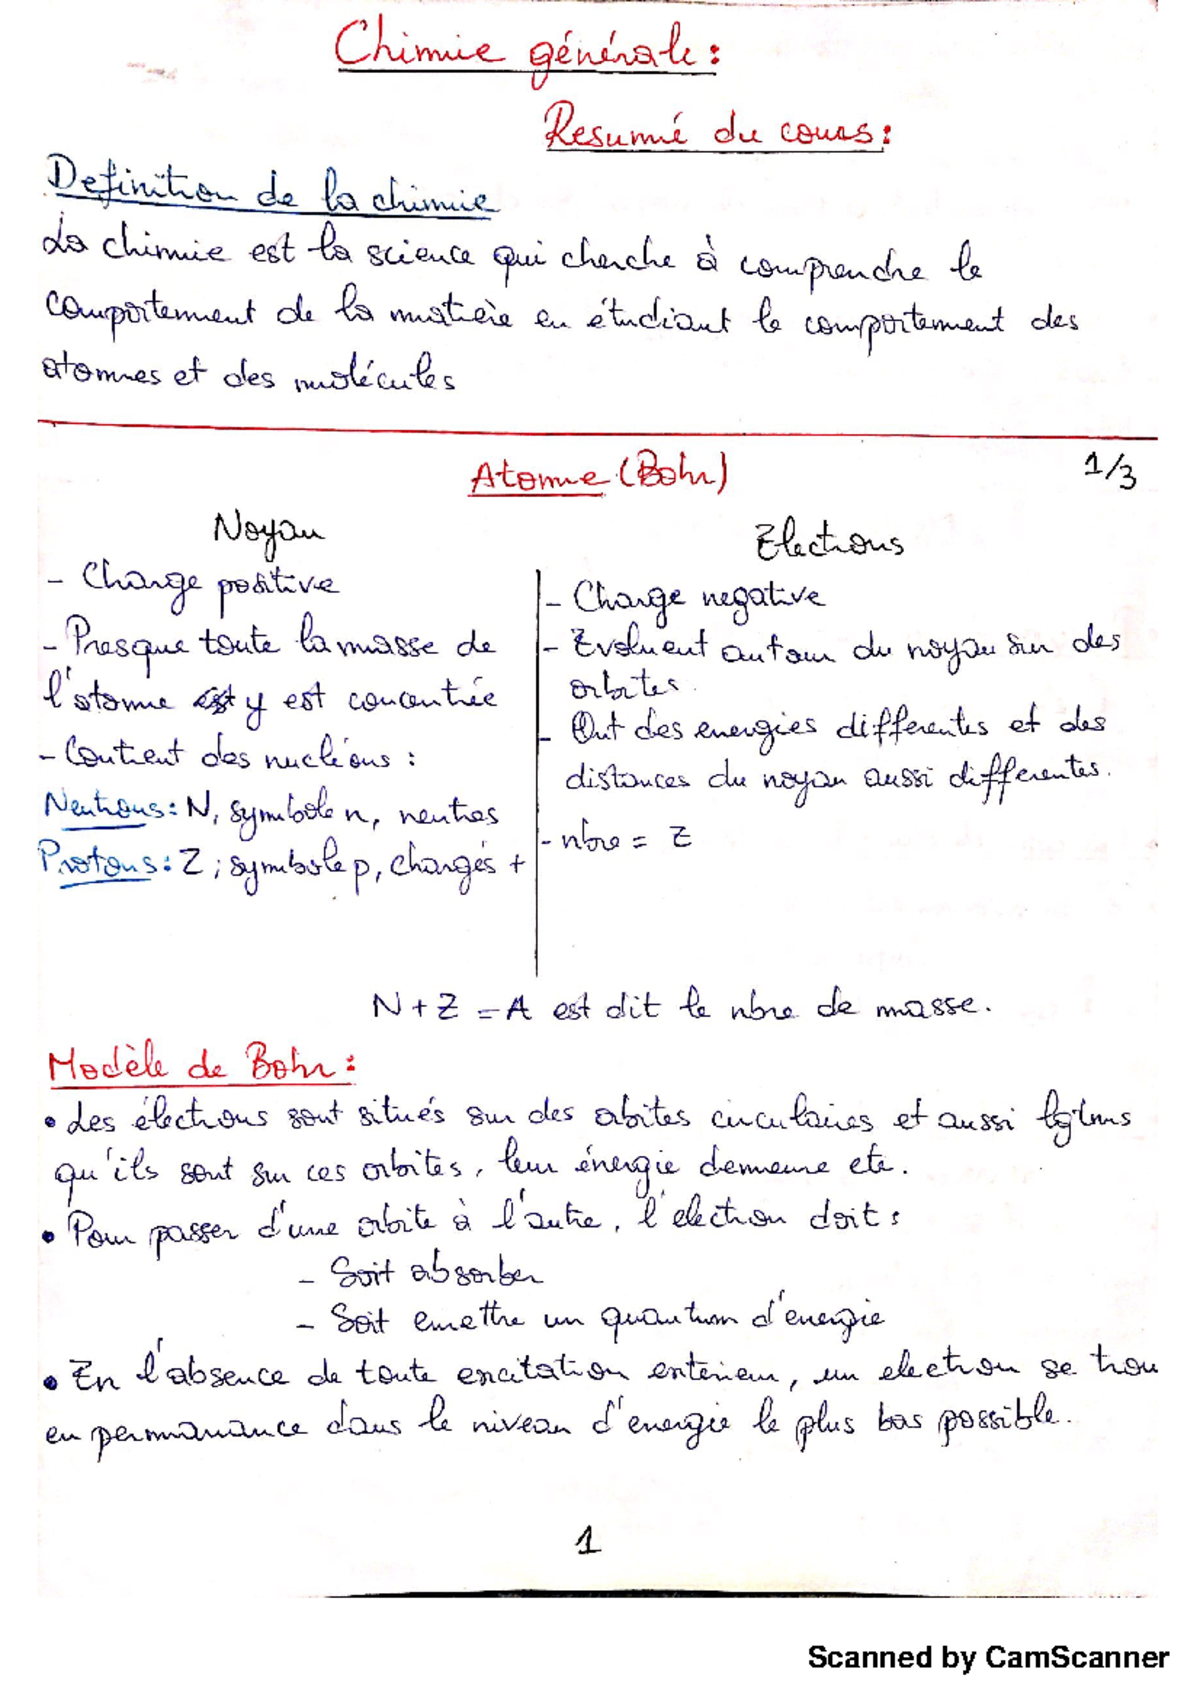 Chimie générale:
Resumé du cours:
Definition de la chimie
La chimie est la science qui cherche à comprendre le
comportement de la matière en étudiant le comportement des
atomes et des molécules
Atome (Bohr)
1/3
Noyau
- Charge positive
- Presque toute la masse de
l'atome est y est concentrée
- Contient des nucléons :
Neutrons: N, symbole n, neutres
Protons: Z ; symbole p, chargés +
Electrons
- Charge negative
- Evoluent autour du noyau sur des
orbites.
- Ont des energies differentes et des
distances du noyau aussi differentes.
- nbre = Z
N + Z = A est dit le nbre de masse.
Modèle de Bohr :
• Les électrons sont situés sur des orbites circulaires et aussi lgtms
qu'ils sont sur ces orbites, leur énergie demeure cte.
• Pour passer d'une orbite à l'autre, l'electron doit :
- Soit absorber
- Soit emettre un quantum d'énergie
• En l'absence de toute excitation exterieur, un electron se trou
en permanance dans le niveau d'energie le plus bas possible.
1
Scanned by CamScanner